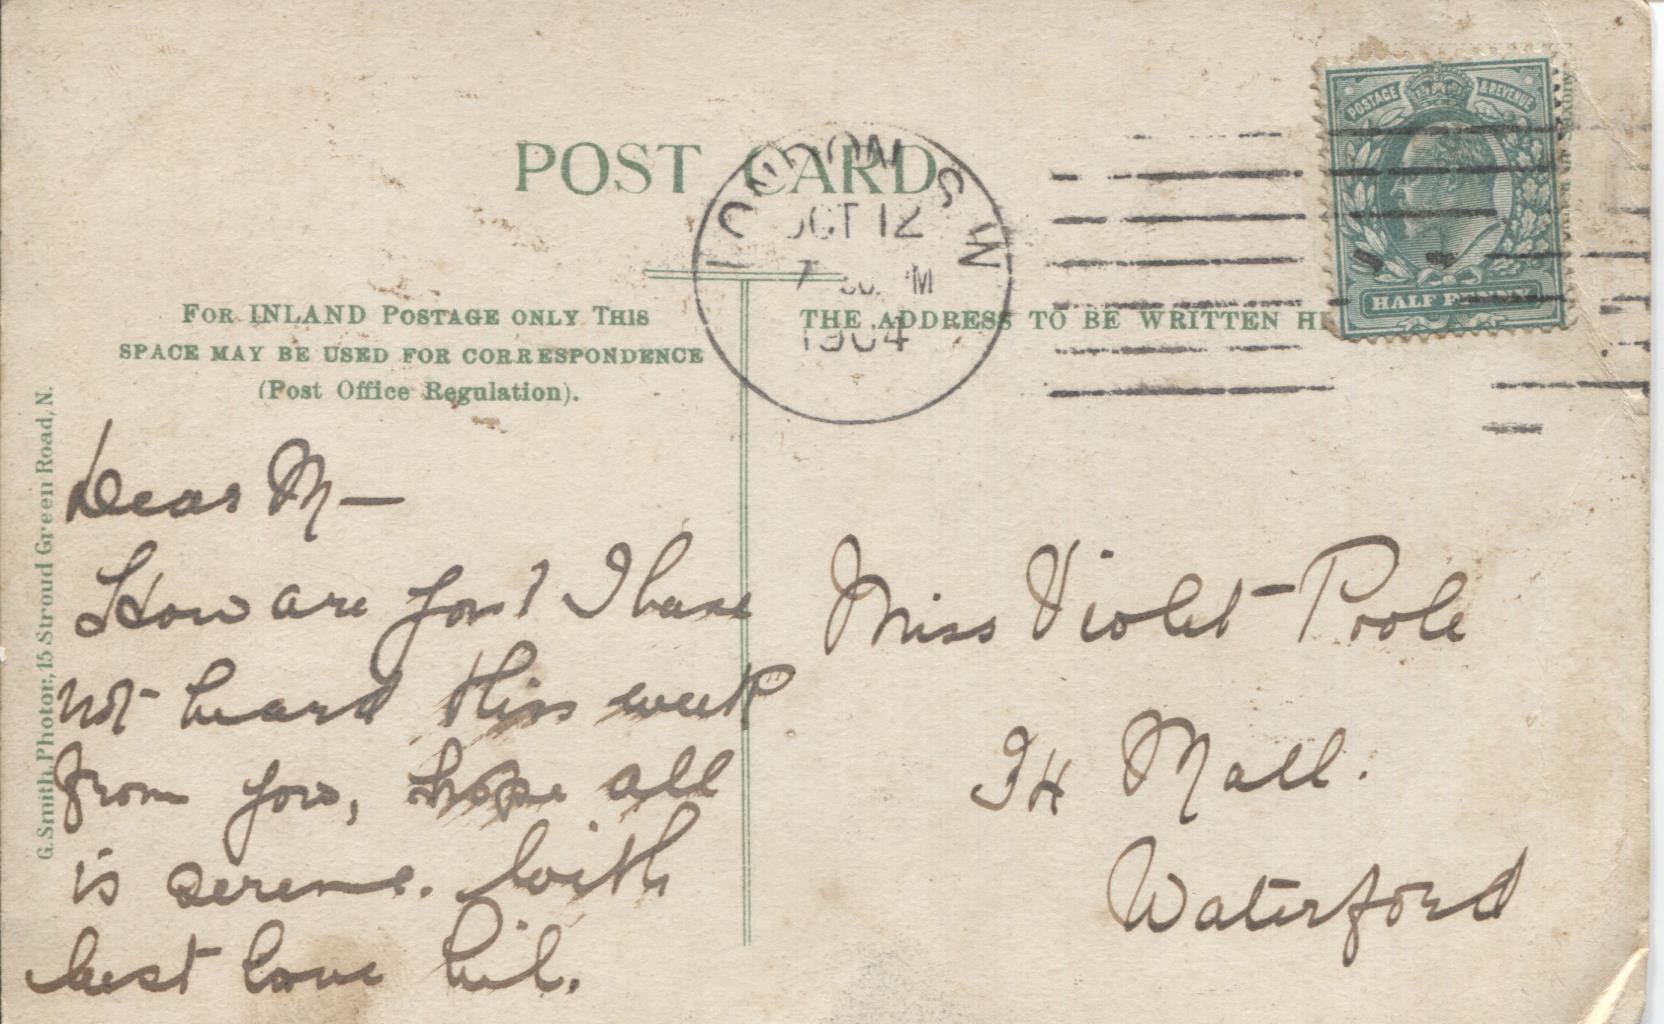 POST CARD
LONDON S.W
OCT 12
1904
POSTAGE & REVENUE
HALF PENNY
FOR INLAND POSTAGE ONLY THIS
SPACE MAY BE USED FOR CORRESPONDENCE
(Post Office Regulation).
THE ADDRESS TO BE WRITTEN
G. Smith, Photor., 15 Stroud Green Road, N.
Dear M—
How are you? I have
not heard this week
from you, hope all
is serene. With
best love
Miss Violet Poole
34 Mall.
Waterford